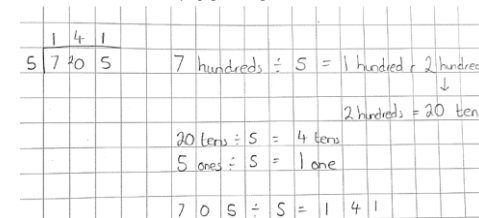 1 4 1
5 7 ²0 5
7 hundreds ÷ 5 = 1 hundred r 2 hundred
↓
2 hundreds = 20 ten
20 tens ÷ 5 = 4 tens
5 ones ÷ 5 = 1 one
7 0 5 ÷ 5 = 1 4 1